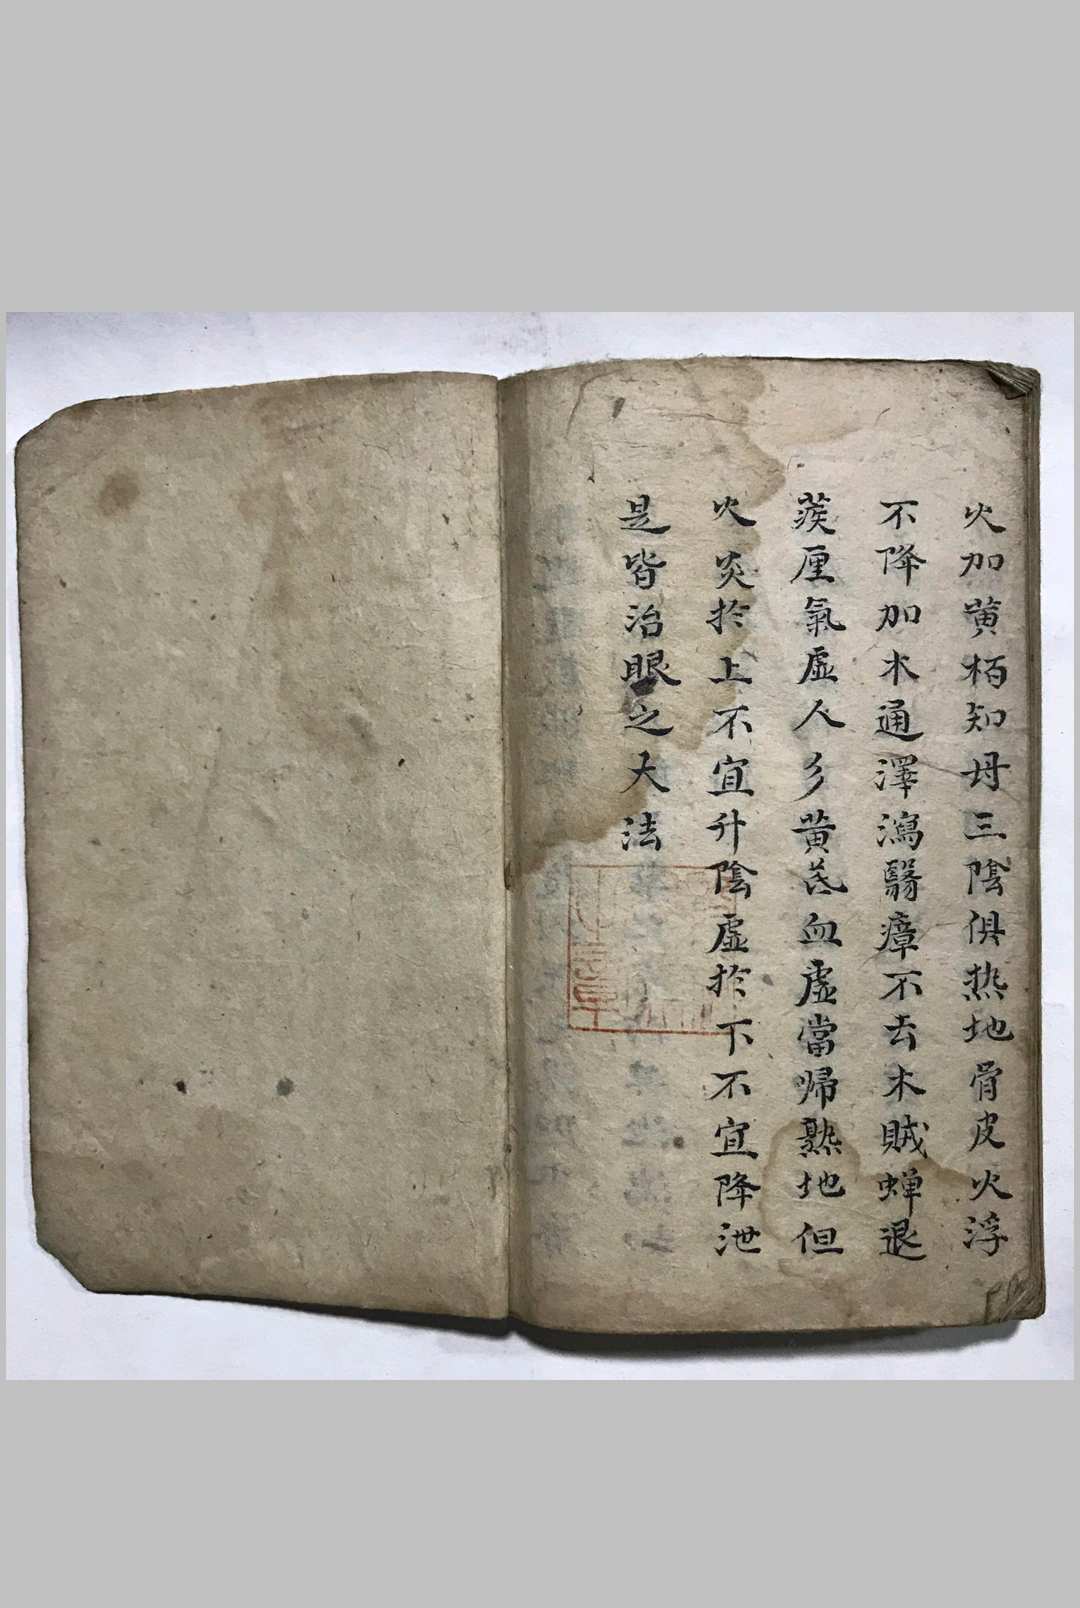 火加黄栢知母三陰俱热地骨皮火浮
不降加木通澤瀉翳瘴不去木賊蝉退
蒺厘氣虚人彡黄芪血虚當帰熟地但
火炎於上不宜升陰虚於下不宜降泄
是皆治眼之大法